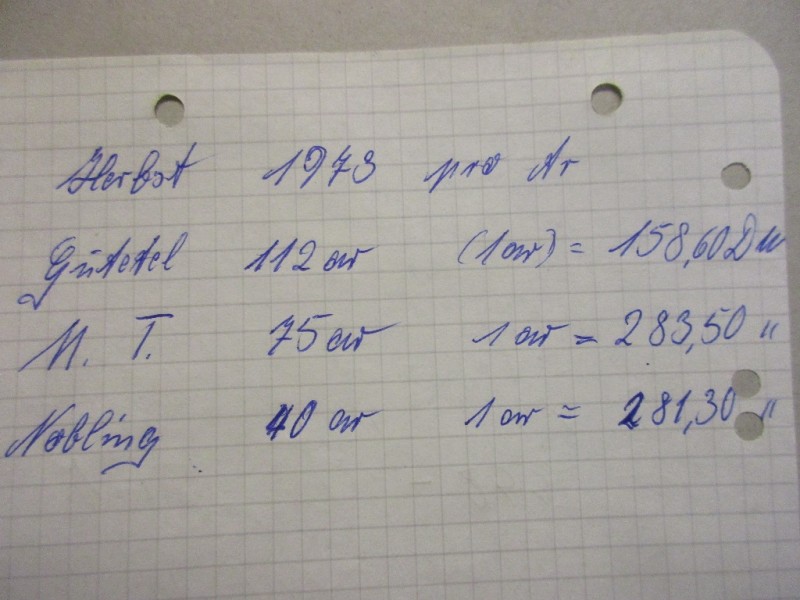 Herbst 1973 pro Ar
Gutetel 112 ar (1 ar) = 158,60 DM
M. T. 75 ar 1 ar = 283,50 "
Nobling 40 ar 1 ar = 281,30 "